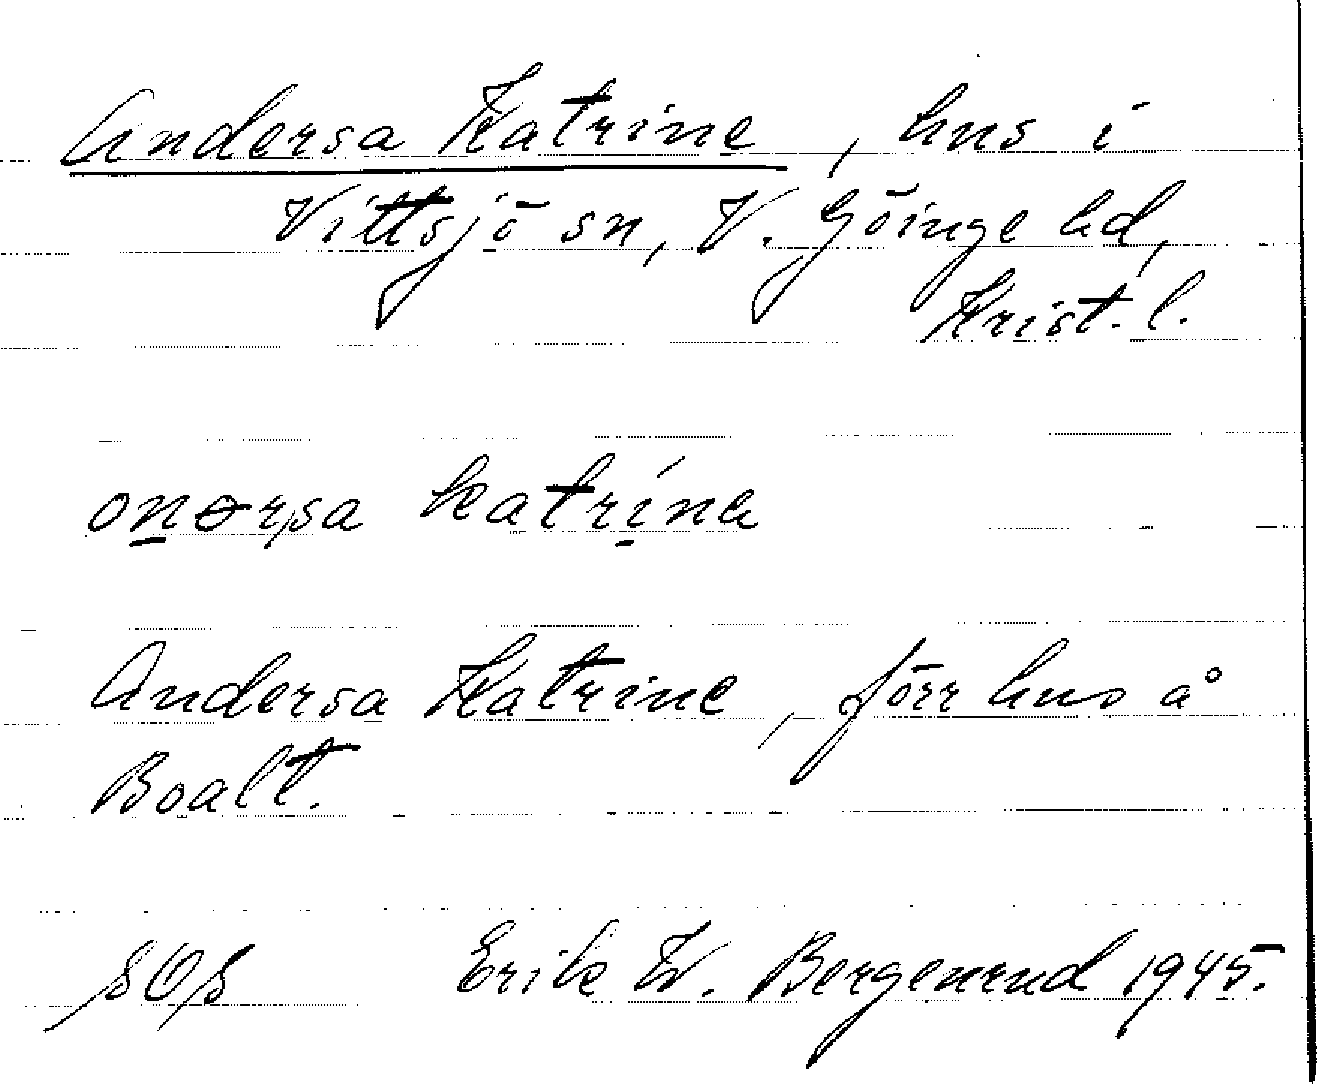 Andersa Katrine, hus i
Vittsjö sn, V. Göinge hd,
Krist. l.
onərsa katrína
Andersa Katrine, förr hus å
Boalt.
Erik W. Bergenrud 1945.